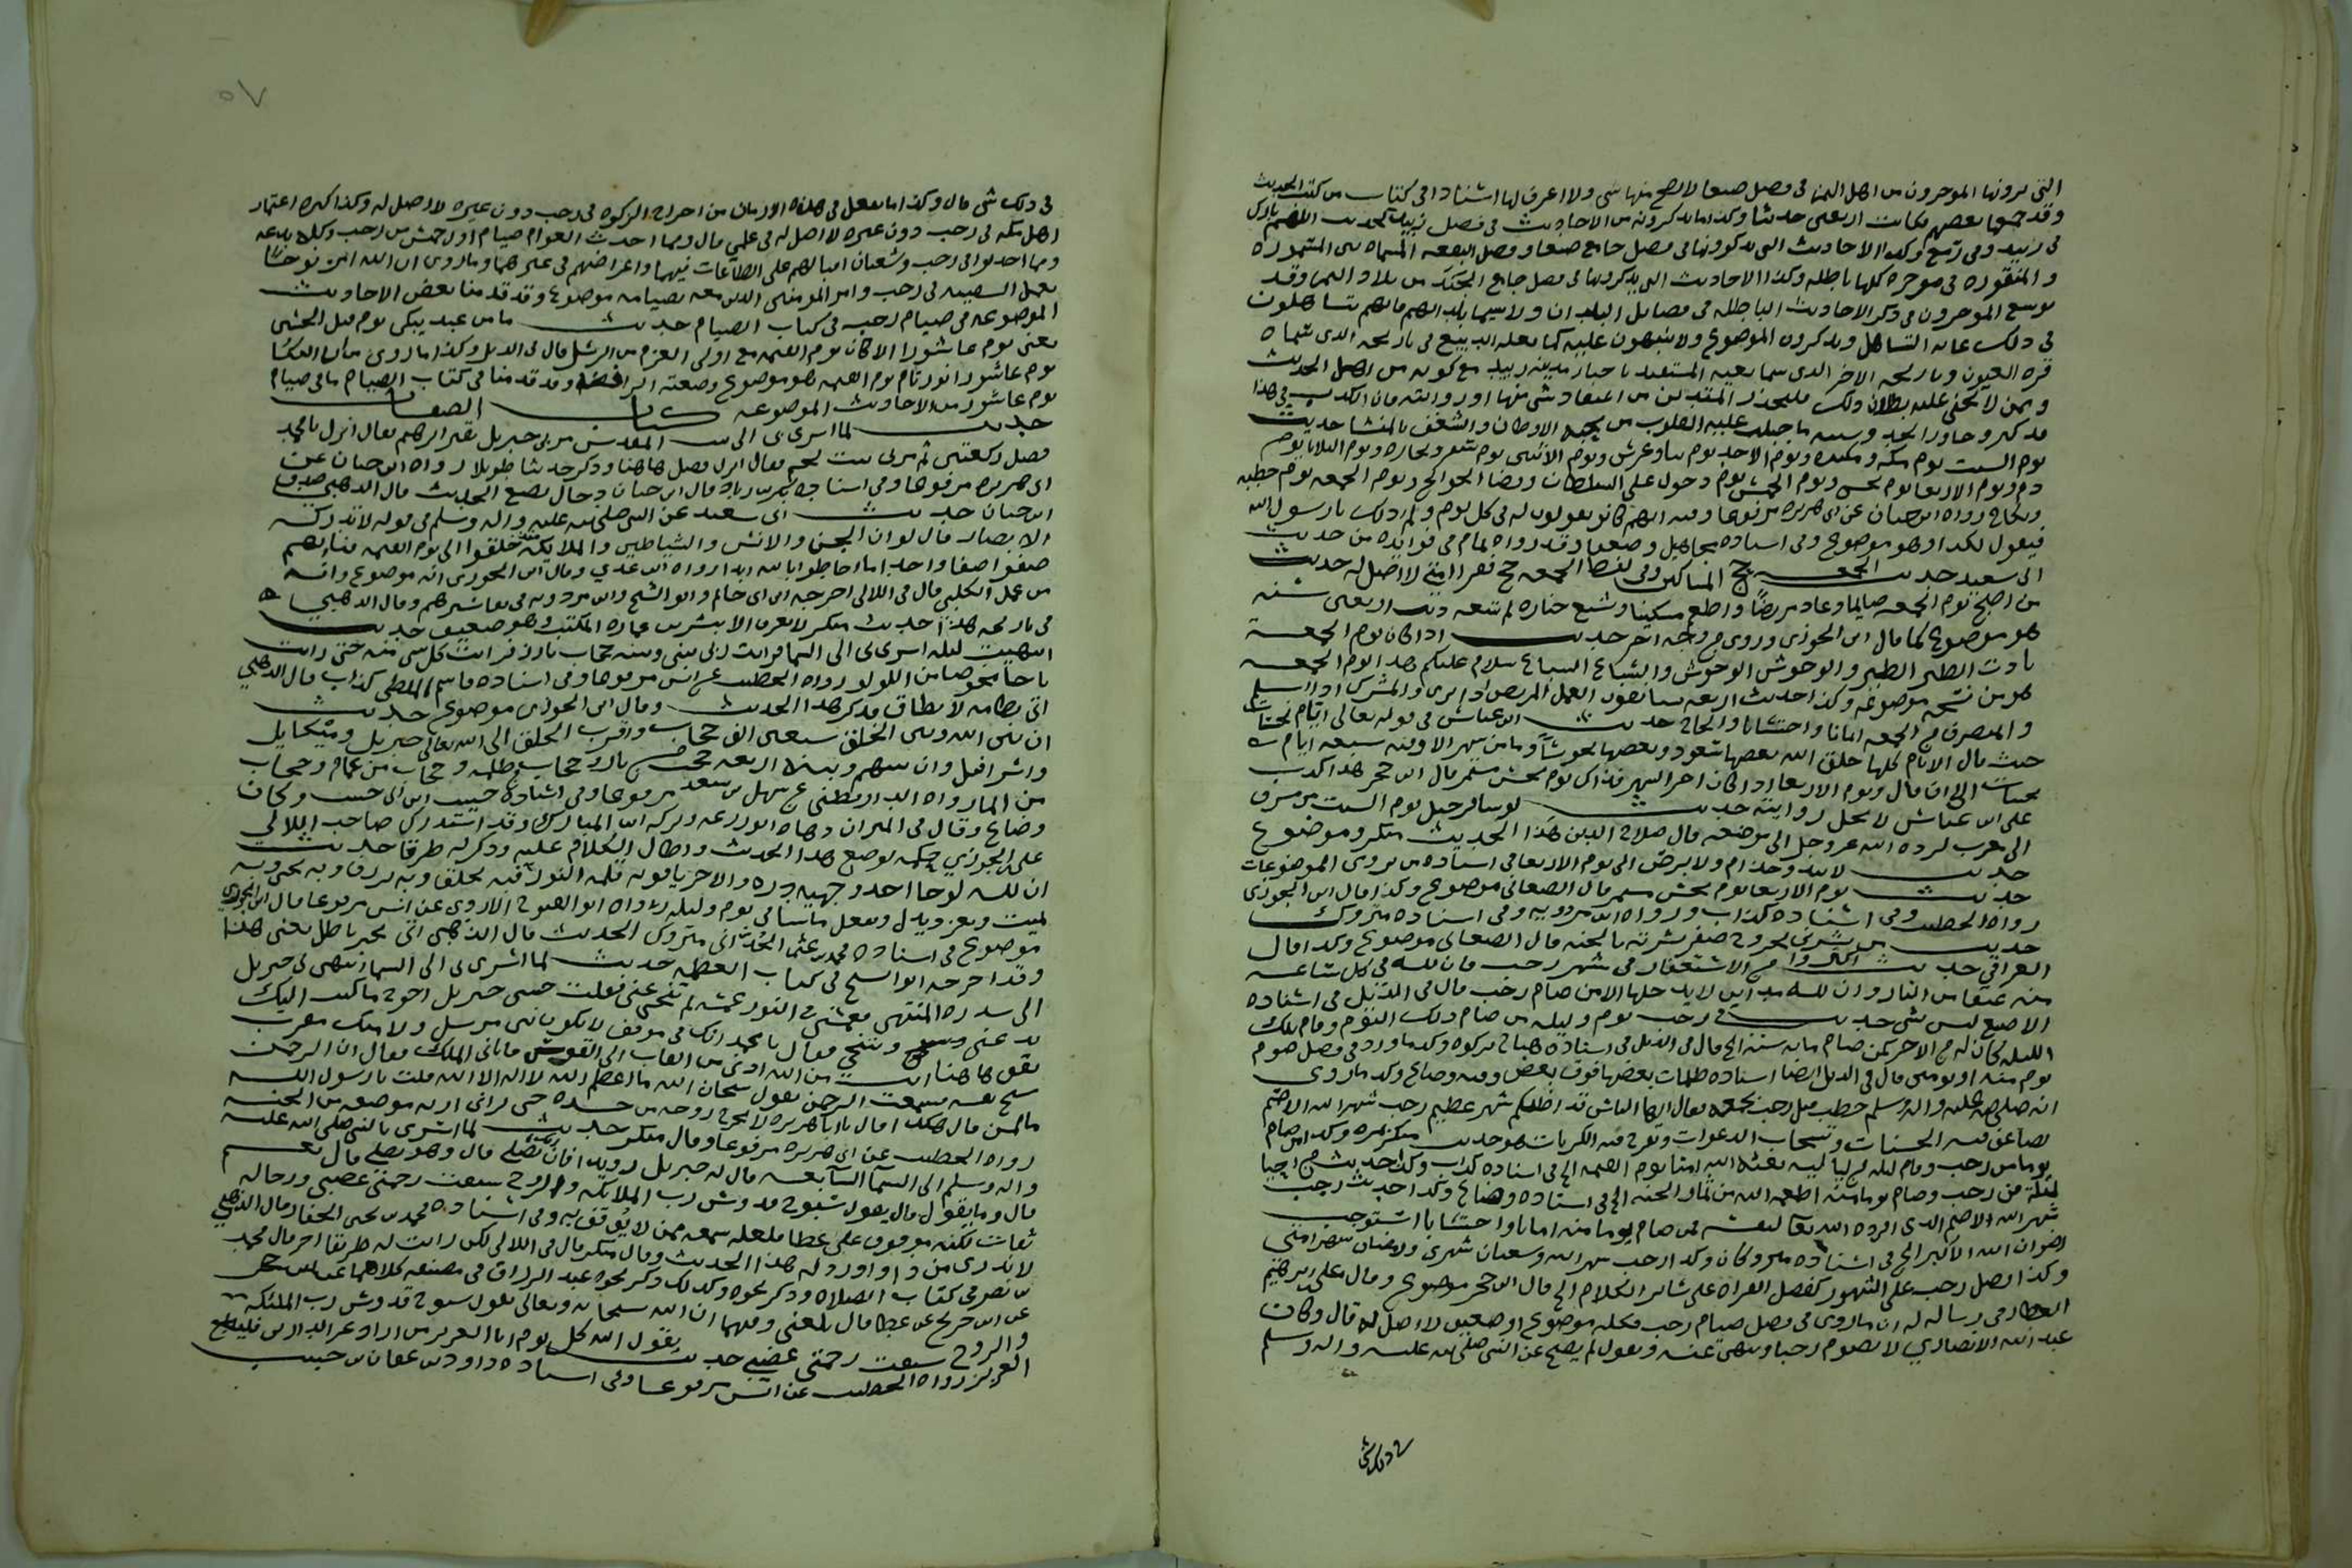 التي يرونها المؤرخون من اهل اليمن في فضل صنعا لا يصح منها شي ولا اعرف لها اسنادا في كتاب من كتب الحديث
وقد جمعها بعضهم فكانت اربعين حديثا وكذا ما يذكرونه من الاحاديث في فضل زبيد كحديث اللهم بارك
في زبيد وفي رمع وكذا الاحاديث التي يذكرونها في فضل جامع صنعا وفضل البقعه المسماه بين المسموره
والمنقوره في موخره كلها باطله وكذا الاحاديث التي يذكرونها في فضل جامع الجند من بلاد اليمن وقد
توسع المؤرخون في ذكر الاحاديث الباطله في فضايل البلدان ولا سيما بلدانهم فانهم يتساهلون
في ذلك غايه التساهل ويذكرون الموضوع ولا ينبهون عليه كما فعله الديبع في تاريخه الذي سماه
قره العيون وتاريخه الاخر الذي سماه بغيه المستفيد باخبار مدينه زبيد مع كونه من اهل الحديث
وممن لا يخفى عليه بطلان ذلك فليحذر المتدين من اعتقاد شي منها او روايته فان الكذب في هذا
قد كثر وجاوز الحد وسببه ما جبلت عليه القلوب من محبه الاوطان والشغف بالمنشا حديث
يوم السبت يوم مكر ومكيده ويوم الاحد يوم بنا وغرس ويوم الاثنين يوم سفر وتجاره ويوم الثلاثا يوم
دم ويوم الاربعا يوم نحس ويوم الخميس يوم دخول على السلطان وقضا الحوائج ويوم الجمعه يوم خطبه
ونكاح رواه ابن حبان عن ابي هريره مرفوعا وفيه انهم كانوا يقولون له في كل يوم ولم ذلك يا رسول الله
فيقول لكذا وهو موضوع وفي اسناده مجاهيل وضعفا وقد رواه تمام في فوايده من حديث
ابي سعيد حديث الجمعه حج المساكين وفي لفظ الجمعه حج فقرا امتي لا اصل له حديث
من اصبح يوم الجمعه صايما وعاد مريضا واطعم مسكينا وشيع جنازه لم يتبعه ذنب اربعين سنه
هو موضوع كما قال ابن الجوزي وروي من وجه اخر حديث اذا كان يوم الجمعه
نادت الطير الطير والوحوش الوحوش والسباع السباع سلام عليكم هذا يوم الجمعه
هو من نسخه موضوعه وكذا حديث اربعه يستانفون العمل المريض اذا برئ والمشرك اذا اسلم
والمنصرف من الجمعه ايمانا واحتسابا والحاج حديث ابن عباس في قوله تعالى ايام نحسات
حيث قال الايام كلها خلق الله بعضها سعود وبعضها نحوس وما من شهر الا وفيه سبعه ايام
نحسات الى ان قال ويوم الاربعا اذا كان اخر الشهر فذاك يوم نحس مستمر قال ابن حجر هذا كذب
على ابن عباس لا تحل روايته حديث لو سافر جبل يوم السبت من مشرق
الى مغرب لرده الله عز وجل الى موضعه قال صلاح الدين هذا الحديث منكر وموضوع
حديث لا يبدو جذام ولا برص الى يوم الاربعا في اسناده من يروي الموضوعات
حديث يوم الاربعا يوم نحس مستمر قال الصغاني موضوع وكذا قال ابن الجوزي
رواه الخطيب وفي اسناده كذاب ورواه ابن مردويه وفي اسناده متروك
حديث من بشرني بخروج صفر بشرته بالجنه قال الصغاني موضوع وكذا قال
العراقي حديث اكثروا من الاستغفار في شهر رجب فان لله في كل ساعه
منه عتقا من النار وان لله مداين لا يدخلها الا من صام رجب قال في الذيل في اسناده
الاصبغ ليس بشي حديث في رجب يوم وليله من صام ذلك اليوم وقام تلك
الليله كان له من الاجر كمن صام مايه سنه الخ قال في الذيل في اسناده هناد تركوه وكذا ما ورد في فضل صوم
يوم منه او يومين قال في الذيل ايضا اسناده ظلمات بعضها فوق بعض وفيه وضاع وكذا ما روي
انه صلى الله عليه واله وسلم خطب قبل رجب بجمعه فقال ايها الناس قد اظلكم شهر عظيم رجب شهر الله الاصم
تضاعف فيه الحسنات وتستجاب الدعوات وتفرج فيه الكربات هو حديث منكر بمره وكذا من صام
يوما من رجب وقام ليله من لياليه بعثه الله امنا يوم القيمه الخ في اسناده كذاب وكذا حديث من احيا
ليله من رجب وصام يوما منه اطعمه الله من ثمار الجنه الخ في اسناده وضاع وكذا حديث رجب
شهر الله الاصم الذي افرده الله تعالى لنفسه فمن صام يوما منه ايمانا واحتسابا استوجب
رضوان الله الاكبر الخ في اسناده متروكان وكذا رجب شهر الله وشعبان شهري ورمضان شهر امتي
وكذا فضل رجب على الشهور كفضل القران على ساير الكلام الخ قال ابن حجر موضوع وقال علي بن ابرهيم
العطار في رساله له ان ما روي في فضل صيام رجب فكله موضوع او ضعيف لا اصل له قال وكان
عبد الله الانصاري لا يصوم رجبا وينهى عنه ويقول لم يصح عن النبي صلى الله عليه واله وسلم
في ذلك شي
٥٧
في ذلك شي قال وكذا ما يفعل في هذه الازمان من اخراج الزكوه في رجب دون غيره لا اصل له وكذا كثره اعتمار
اهل مكه في رجب دون غيره لا اصل له في علمي قال ومما احدث العوام صيام اول خميس من رجب وكله بدعه
ومما احدثوا في رجب وشعبان اقبالهم على الطاعات فيهما واعراضهم في غيرهما وما روي ان الله امر نوحا
بعمل السفينه في رجب وامر المومنين الذين معه بصيامه موضوع وقد قدمنا بعض الاحاديث
الموضوعه في صيام رجب في كتاب الصيام حديث ما من عبد يبكي يوم قتل الحسين
يعني يوم عاشورا الا كان يوم القيمه مع اولي العزم من الرسل قال في الذيل وكذا ما روي من ان البكا
يوم عاشورا نور تام يوم القيمه هو موضوع وضعته الرافضه وقد قدمنا في كتاب الصيام ما في صيام
يوم عاشورا من الاحاديث الموضوعه كتاب الصفات
حديث لما اسري بي الى بيت المقدس مر بي جبريل بقبر ابرهيم فقال انزل يا محمد
فصل ركعتين ثم مر بي ببيت لحم فقال انزل فصل هاهنا وذكر حديثا طويلا رواه ابن حبان عن
ابي هريره مرفوعا وفي اسناده بكر بن زياد قال ابن حبان دجال يضع الحديث قال الذهبي صدق
ابن حبان حديث ابي سعيد عن النبي صلى الله عليه واله وسلم في قوله لا تدركه
الابصار قال لو ان الجن والانس والشياطين والملايكه منذ خلقوا الى يوم القيمه فنائهم
صفوا صفا واحدا ما احاطوا بالله ابدا رواه ابن عدي وقال ابن الجوزي انه موضوع وانه
من عمل الكلبي قال في اللالي اخرجه ابن ابي حاتم وابو الشيخ وابن مردويه في تفاسيرهم وقال الذهبي
في تاريخه هذا حديث منكر لا يعرف الا ببشر بن عماره المكتب وهو ضعيف حديث
انتهيت ليله اسري بي الى السما فرايت ربي بيني وبينه حجاب بارز فرايت كل شي منه حتى رايت
تاجا مخوصا من اللولو رواه الخطيب عن انس مرفوعا وفي اسناده قاسم الملطي كذاب قال الذهبي
اتى بطامه لا تطاق فذكر هذا الحديث وقال ابن الجوزي موضوع حديث
ان بين الله وبين الخلق سبعين الف حجاب واقرب الخلق الى الله تعالى جبريل وميكايل
واسرافيل وان بينهم وبينه اربعه حجب حجاب من نار وحجاب من ظلمه وحجاب من غمام وحجاب
من الما رواه الدارقطني عن سهل بن سعد مرفوعا وفي اسناده حبيب بن ابي حبيب وكان
وضاع وقال في الميزان وهاه ابو زرعه وتركه ابن المبارك وقد استدرك صاحب اللالي
على ابن الجوزي حكمه بوضع هذا الحديث واطال الكلام عليه وذكر له طرقا حديث
ان لله لوحا احد وجهيه دره والاخر ياقوته قلمه النور فبه يخلق وبه يرزق وبه يحيي وبه
يميت ويعز ويذل ويفعل ما يشا في يوم وليله رواه ابو الفتح الازدي عن انس مرفوعا قال ابن الجوزي
موضوع في اسناده محمد بن عثمن الحداني متروك الحديث قال الذهبي اتى بخبر باطل يعني هذا
وقد اخرجه ابو الشيخ في كتاب العظمه حديث لما اسري بي الى السما انتهى بي جبريل
الى سدره المنتهى فغمسني في النور غمسه ثم تنحى عني فقلت حبيبي جبريل احوج ما كنت اليك
تدعني وتنحي فقال يا محمد انك في موقف لا يكون نبي مرسل ولا ملك مقرب
يقف هاهنا انت من الله ادنى من القاب الى القوس فاتاني الملك فقال ان الرحمن
يسبح نفسه فسمعت الرحمن يقول سبحان الله ما اعظم الله لا اله الا الله قلت يا رسول الله
ما لمن قال هكذا قال يا ابا هريره لا تخرج روحه من جسده حتى يراني او يرى موضعه من الجنه
رواه الخطيب عن ابي هريره مرفوعا وقال منكر حديث لما اسري بالنبي صلى الله عليه
واله وسلم الى السما السابعه قال له جبريل رويدا فان ربك يصلي قال وهو يصلي قال نعم
قال وما يقول قال يقول سبوح قدوس رب الملايكه والروح سبقت رحمتي غضبي ورجاله
ثقات لكنه موقوف على عطا فلعله سمعه ممن لا يوثق به وفي اسناده محمد بن يحيى الحفار قال الذهبي
لا يدرى من ذا واورد له هذا الحديث وقال منكر قال في اللالي لكن رايت له طريقا اخر قال محمد
بن نصر في كتاب الصلاه وذكر نحوه وكذلك ذكر نحوه عبد الرزاق في مصنفه كلاهما
عن ابن جريج عن عطا قال بلغني وفيهما ان الله سبحانه وتعالى يقول سبوح قدوس رب الملئكه
والروح سبقت رحمتي غضبي حديث يقول الله كل يوم انا العزيز من اراد عز الدارين فليطع
العزيز رواه الخطيب عن انس مرفوعا وفي اسناده داود بن عفان بن حبيب